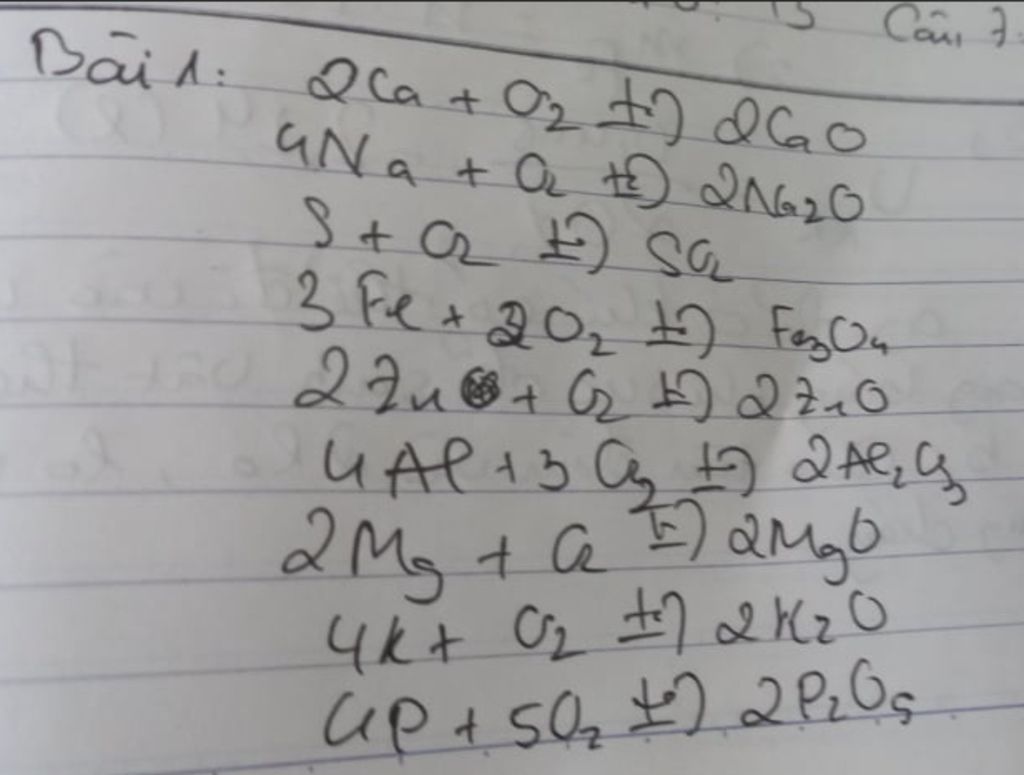 Câu 7:
Bài 1: 2Ca + O₂ →(t°) 2CaO
4Na + O₂ →(t°) 2Na₂O
S + O₂ →(t°) SO₂
3Fe + 2O₂ →(t°) Fe₃O₄
2Zn + O₂ →(t°) 2ZnO
4Al + 3O₂ →(t°) 2Al₂O₃
2Mg + O₂ →(t°) 2MgO
4K + O₂ →(t°) 2K₂O
4P + 5O₂ →(t°) 2P₂O₅